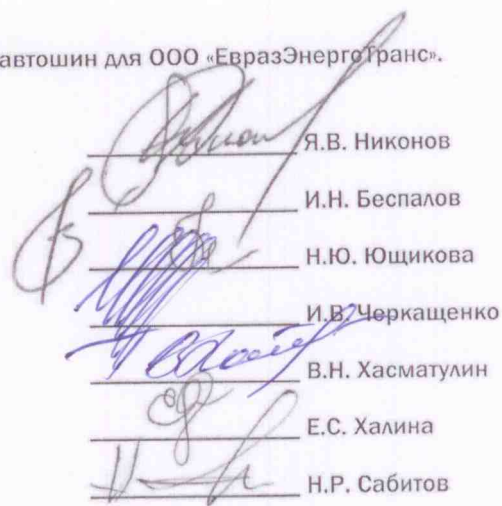 автошин для ООО «ЕвразЭнергоТранс».
Я.В. Никонов
И.Н. Беспалов
Н.Ю. Ющикова
И.В. Черкащенко
В.Н. Хасматулин
Е.С. Халина
Н.Р. Сабитов